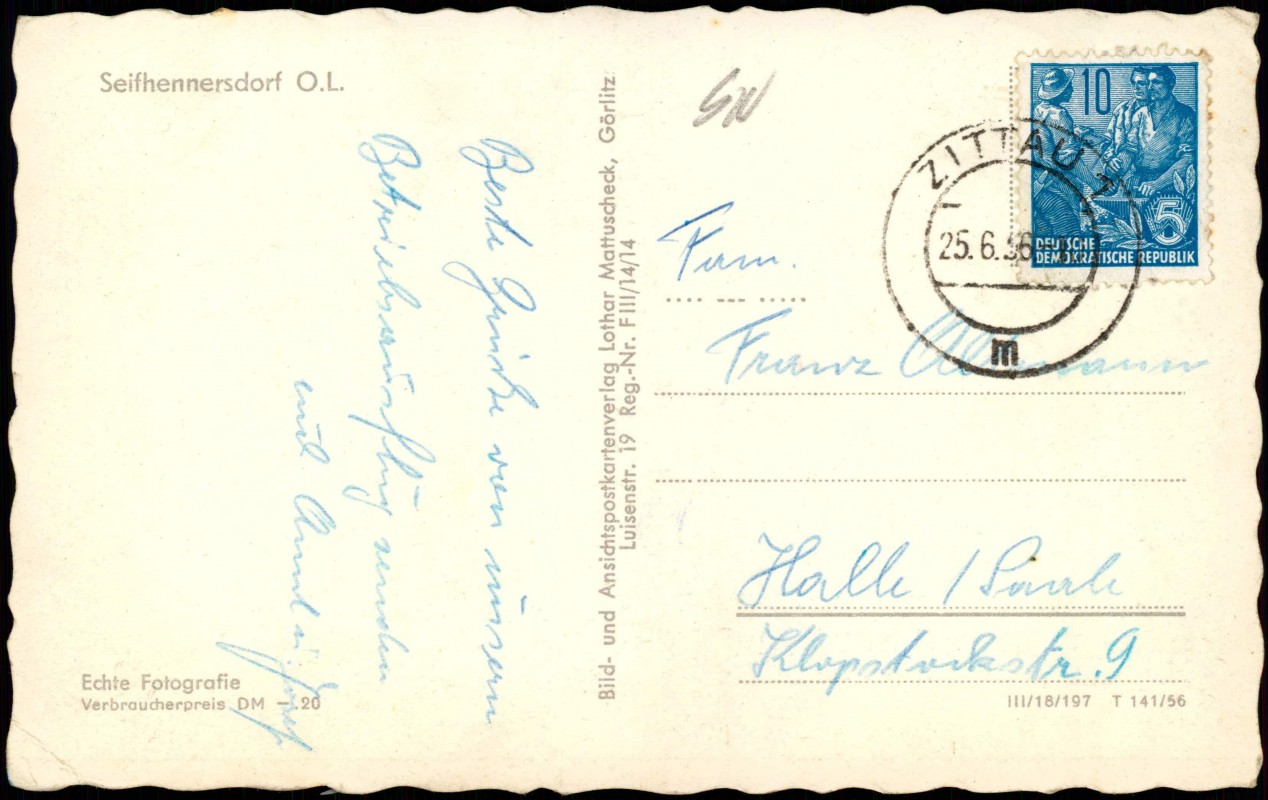 Seifhennersdorf O.L.
Beste Grüße von unserm
Betriebsausflug senden
euch
Echte Fotografie
Verbraucherpreis DM –.20
Bild- und Ansichtspostkartenverlag Lothar Mattuscheck, Görlitz
Luisenstr. 19 Reg.-Nr. F III/14/14
10
5
DEUTSCHE
DEMOKRATISCHE REPUBLIK
ZITTAU
25.6.56
m
Fam.
Franz
Halle / Saale
Klopstockstr. 9
III/18/197 T 141/56